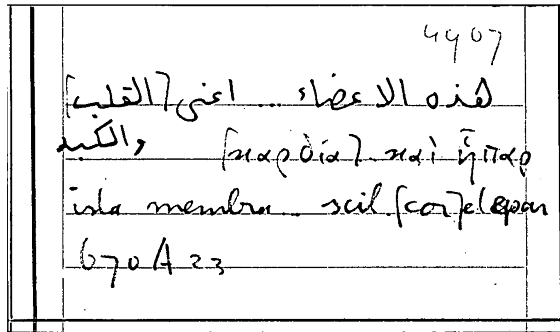 4907
هذه الاعضاء... اعنى [القلب]
والكبد [καρδία] καὶ ἧπαρ
ista membra... scil [cor] et epar
670 A 23